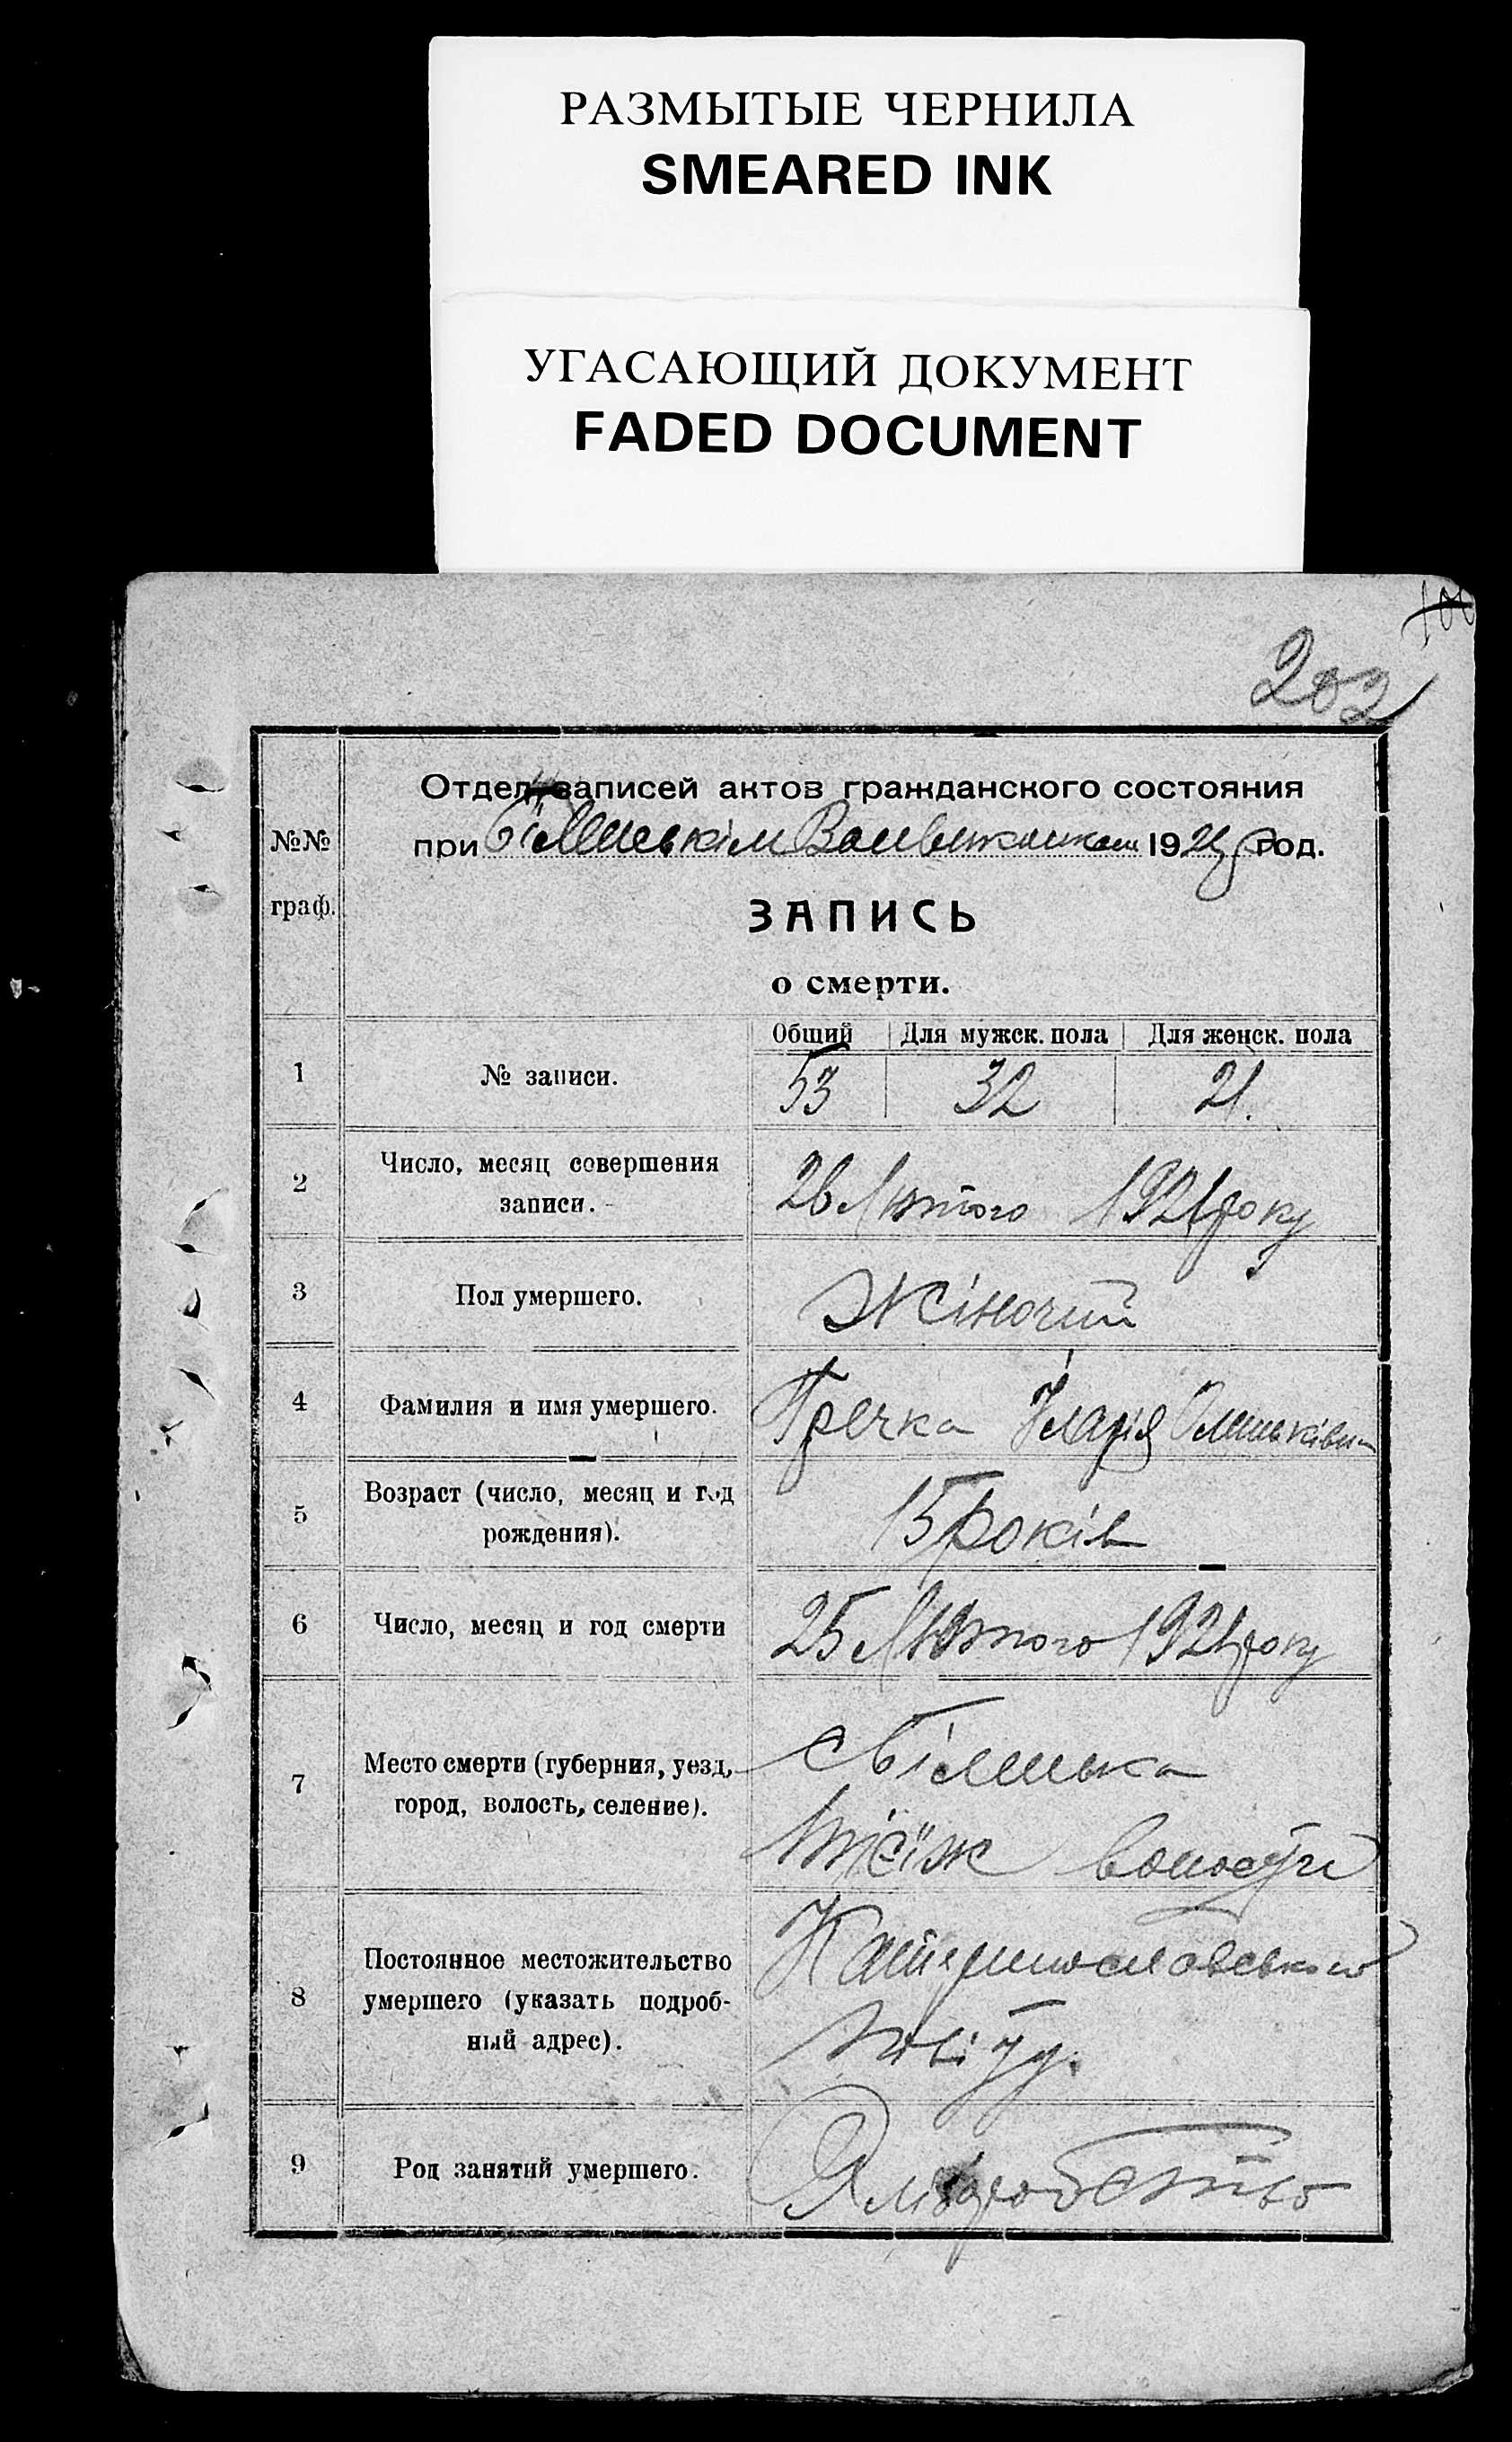 РАЗМЫТЫЕ ЧЕРНИЛА
SMEARED INK
УГАСАЮЩИЙ ДОКУМЕНТ
FADED DOCUMENT
100
202
Отдел записей актов гражданского состояния
при 1921 год.
№№
граф.
ЗАПИСЬ
о смерти.
Общий Для мужск. пола Для женск. пола
1 № записи. 53 32 21.
2 Число, месяц совершения
записи. 26 Лютого 1921 року
3 Пол умершего. Жіночий
4 Фамилия и имя умершего. Гречка
5 Возраст (число, месяц и год
рождения). 15 років
6 Число, месяц и год смерти 25 Лютого 1921 року
7 Место смерти (губерния, уезд,
город, волость, селение).
волости
8 Постоянное местожительство
умершего (указать подроб-
ный адрес).
Катеринославського
повіту.
9 Род занятий умершего.